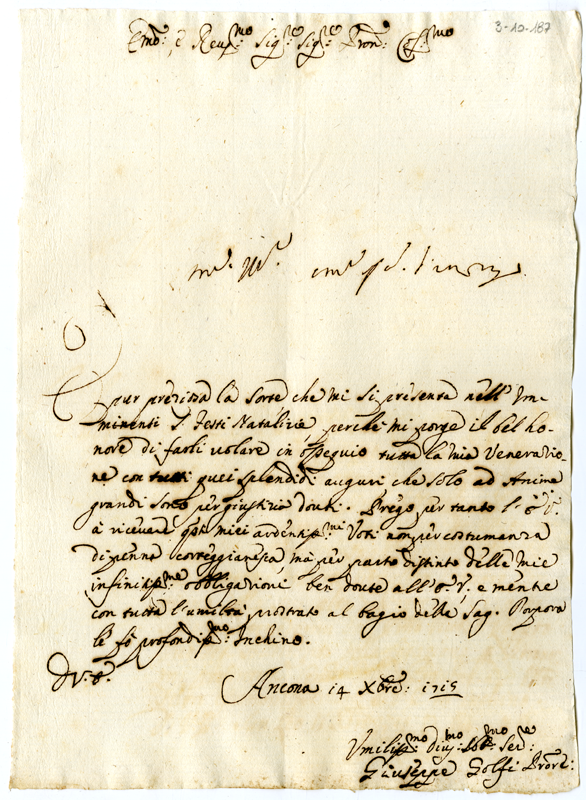 3-10-187
Emo: e Reuṁo Sigre Sigre Pron:
È pur preziosa la sorte che mi si presenta nell'Im-
minenti S. Feste Natalizie, perche mi porge il bel ho-
nore di farli uolare in ossequio tutta la mia Venerazio-
ne con tutti quei splendidi auguri che solo ad Anime
grandi sono per giustizia douti. Prego per tanto l'
à riceuere questi miei ardentissmi: Voti non per costumanza
di penna corteggianesca ma per parto distinto delle mie
infinitissme: obbligazioni ben doute all' e mentre
con tutta l'umiltà prostrato al bagio della Sag. Porpora
le fò profondissmo: Inchino.
Ancona 14 Xbre: 1715
Umilissmo: Diumo: Serre:
Giuseppe Golfi